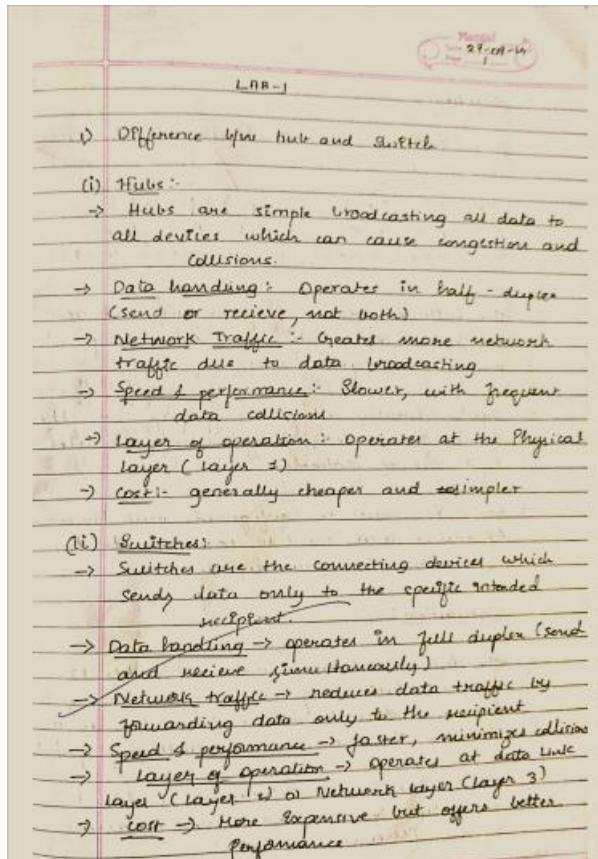 Mangal
Date 27-09-
Page 1
LAB-1
1) Difference b/w hub and Switch
(i) Hubs:-
→ Hubs are simple broadcasting all data to
all devices which can cause congestion and
collisions.
→ Data handling:- Operates in half-duplex
(send or recieve, not both)
→ Network Traffic:- Creates more network
traffic due to data broadcasting
→ Speed & performance:- Slower, with frequent
data collisions
→ Layer of operation:- Operates at the Physical
layer (Layer 1)
→ Cost:- generally cheaper and simpler
(ii) Switches:-
→ Switches are the connecting devices which
sends data only to the specific intended
recipient.
→ Data handling → operates in full duplex (send
and recieve simultaneously)
→ Network traffic → reduces data traffic by
forwarding data only to the recipient
→ Speed & performance → faster, minimizes collisions
→ Layer of operation → operates at data link
layer (Layer 2) or Network layer (Layer 3)
→ Cost → More Expensive but offers better
Performance